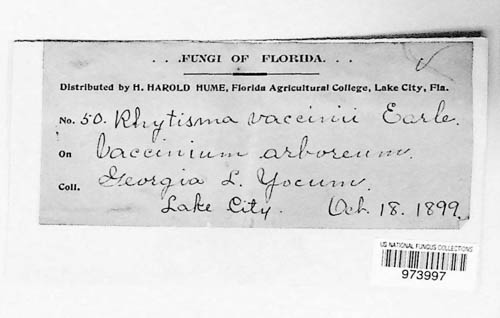 . . .FUNGI OF FLORIDA. . .
Distributed by H. HAROLD HUME, Florida Agricultural College, Lake City, Fla.
No. 50. Rhytisma vaccinii Earle.
On Vaccinium arboreum.
Coll. Georgia L. Yocum.
Lake City. Oct. 18. 1899.
US NATIONAL FUNGUS COLLECTIONS
973997